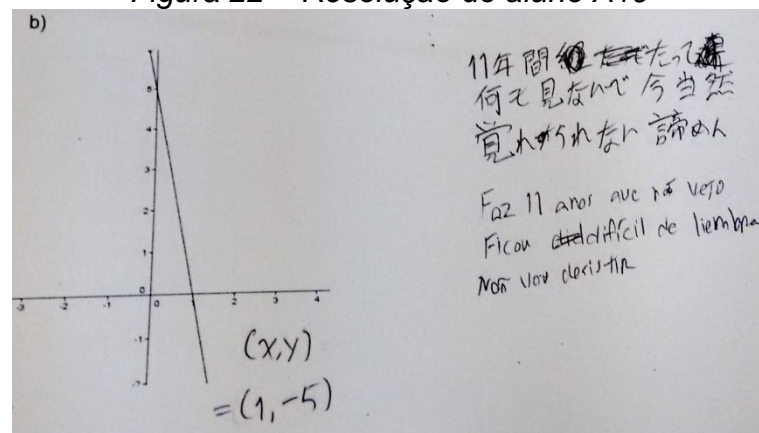 Figura 22 – Resolução do aluno A19
b)
5
4
3
2
1
0
-3 -2 -1 0 1 2 3 4
-1
(x,y)
=(1,-5)
11年間 たって
何も見ないで 今当然
覚れられない 諦めん
Faz 11 anos que não vejo
Ficou difícil de liembra
Não vou desistir